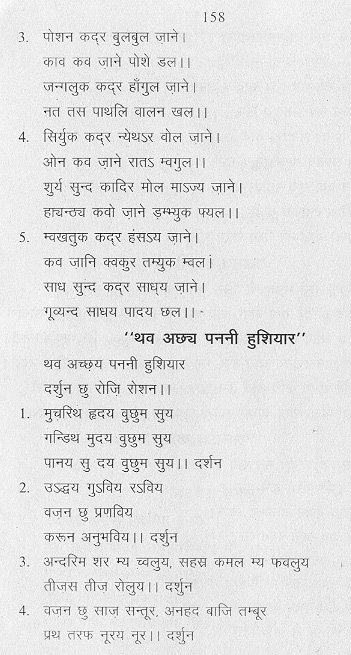 158
3. पोशन कद्र बुलबुल ज़ाने।
काव कव ज़ाने पोशे डल।।
जन्गलुक कद्र हाँगुल ज़ाने।
नत तस पाथलि वालन खल।।
4. सिर्युक कद्र न्येथऽर वोल ज़ाने।
ओन कव ज़ाने रातऽ म्वगुल।।
शुर्य सुन्द कादिर मोल माऽज्य ज़ाने।
हाच़न्ठ्य कवो ज़ाने ड़म्भ्युक फ्यल।।
5. म्वखतुक कद्र हंसऽय ज़ाने।
कव ज़ानि क्वकुर तम्युक म्वल।
साध सुन्द कद्र साध्य़ ज़ाने।
गूव्यन्द साधय पादय छल।।
''थव अछ्य पननी हुशियार''
थव अच्छ़य पननी हुशियार
दर्शुन छु रोज़ि रोशन।।
1. मुच़रिथ हृदय वुछुम सुय
गन्डिथ मुदय वुछुम सुय
पानय सु दय वुछुम सुय।। दर्शन
2. उऽद्वय गुऽविय रऽविय
वज़न छु प्रणविय
करून अनुभविय।। दर्शुन
3. अन्दरिम शर म्य च्वलुय, सहस्र कमल म्य फवलुय
तीजस तीज़ रोलुय।। दर्शुन
4. वज़न छु साज़ सन्तूर, अनहद बाजि तम्बूर
प्रथ तरफ नूरय नूर।। दर्शुन